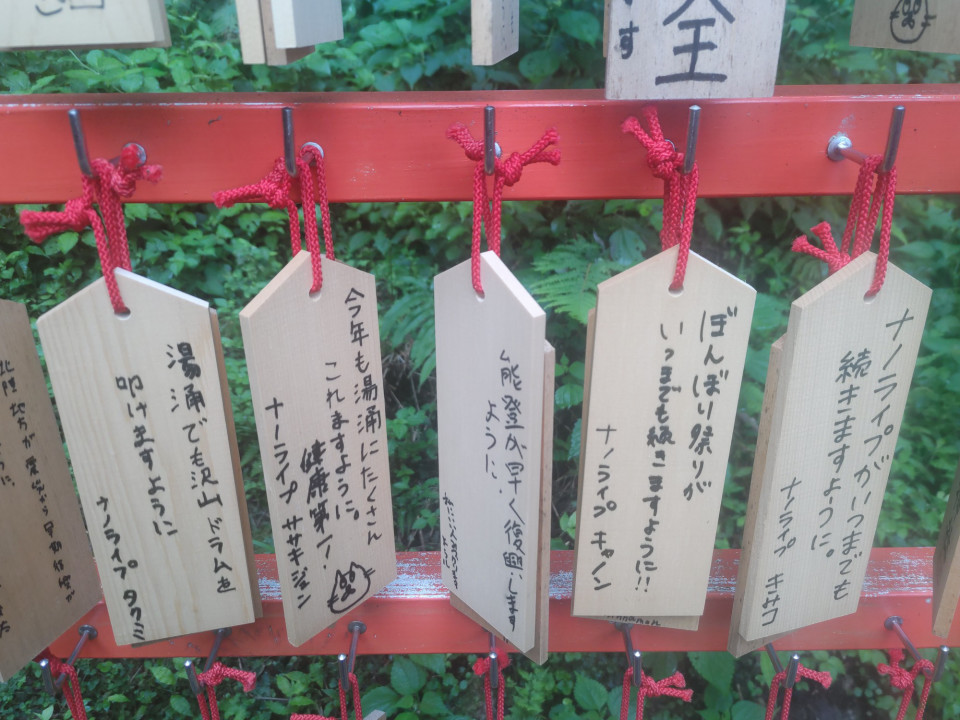 す
全王
湯涌でも沢山ドラムを
叩けますように
ナノライブ タクミ
今年も湯涌にたくさん
これますように。
健康第一!
ナノライブ ササキジュン
能登が早く復興します
ように
ぼんぼり祭りが
いつまでも続きますように!!
ナノライブ キャノン
ナノライブがいつまでも
続きますように。
ナノライブ キミコ